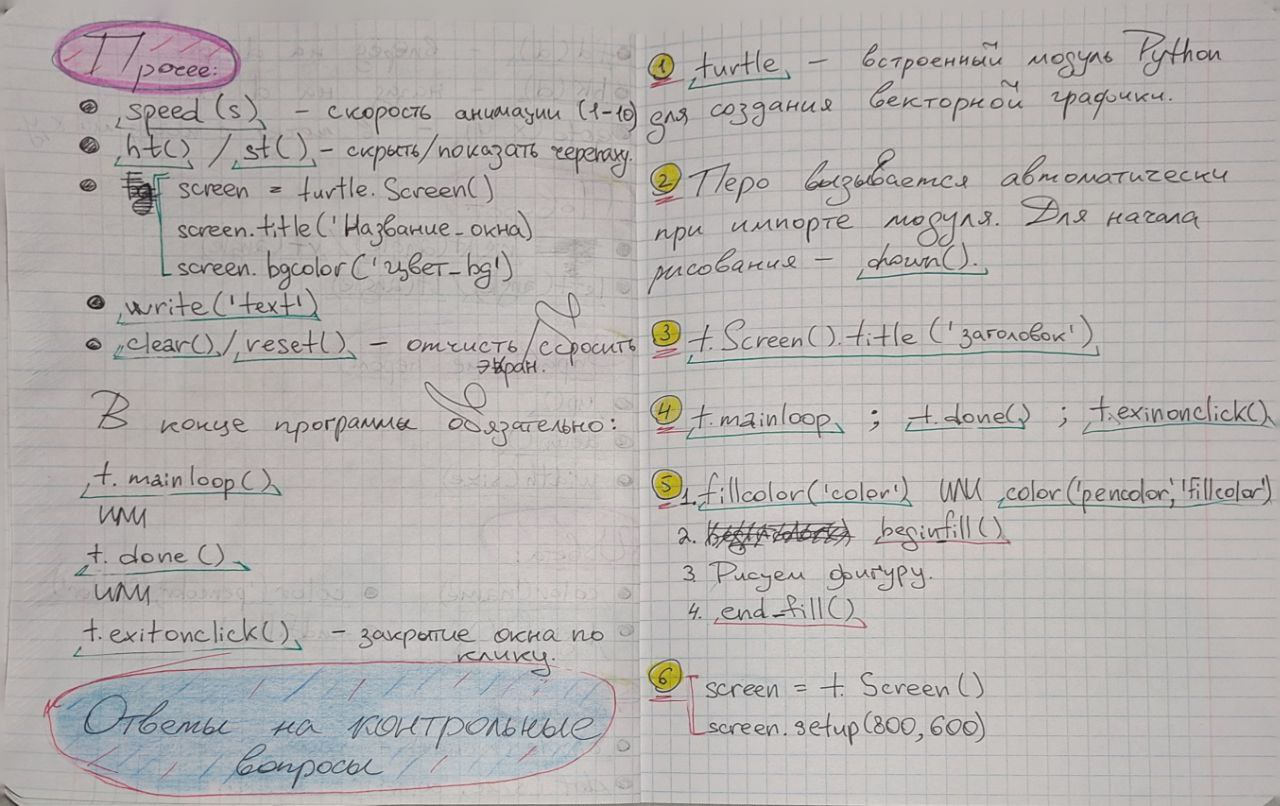 Прочее:
• speed(s) - скорость анимации (1-10)
• ht() / st() - скрыть/показать черепаху.
• screen = turtle.Screen()
screen.title('Название_окна)
screen.bgcolor('цвет_bg')
• write('text')
• clear()/reset() - отчисть/сбросить
экран.
В конце программы обязательно:
t.mainloop()
или
t.done()
или
t.exitonclick() - закрытие окна по
клику.
Ответы на контрольные
вопросы
1 turtle - встроенный модуль Python
для создания векторной графики.
2 Перо вызывается автоматически
при импорте модуля. Для начала
рисования - down().
3 t.Screen().title('заголовок')
4 t.mainloop ; t.done() ; t.exinonclick()
5 1. fillcolor('color') или color('pencolor','fillcolor')
2. beginfill()
3 Рисуем фигуру.
4. end_fill()
6 screen = t. Screen()
screen.setup(800,600)